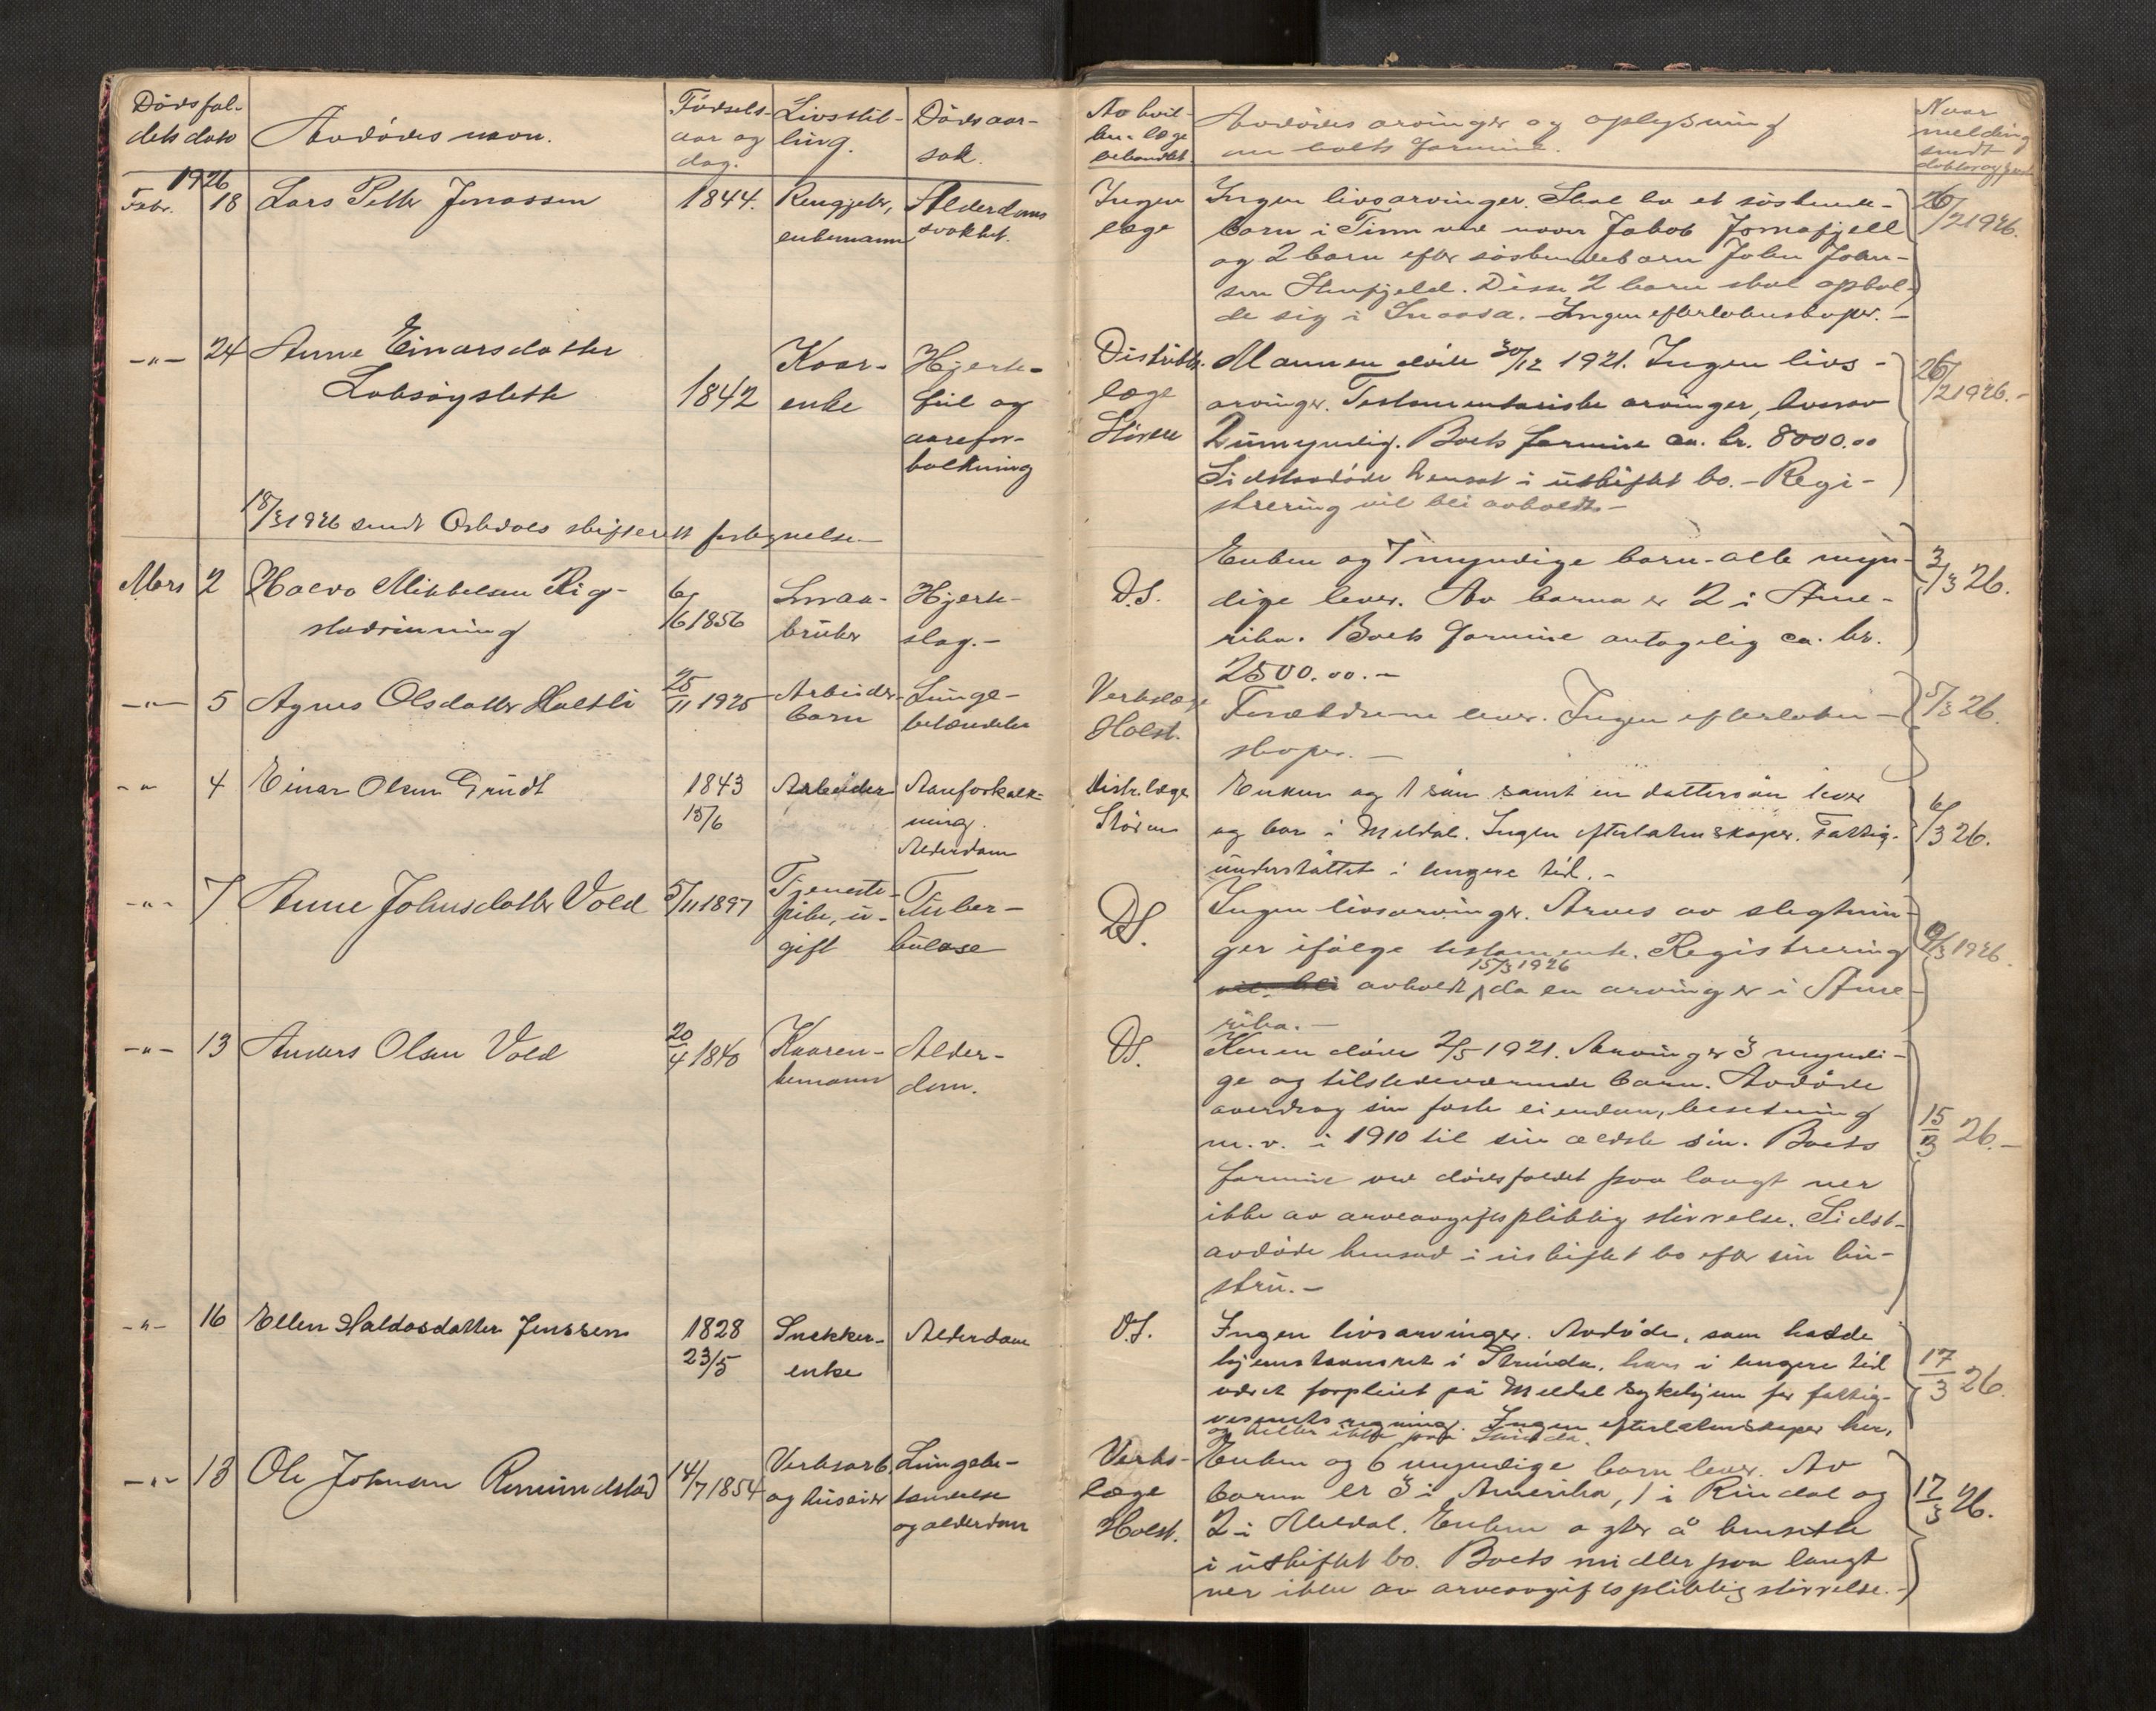 Dödsfal-
dets dato
Avdödes navn.
Födsels-
aar og
dag.
Livsstil-
ling.
Dödsaar-
sak.
Av hvil-
ken læge
behandlet.
Avdödes arvinger og oplysning
om boets formue.
Naar
melding
sendt
1926
Febr. 18 Lars Petter Jonassen
1844.
Rengjeter,
enkemann
Alderdoms
svakhet.
Ingen
læge
Ingen livsarvinger. Skal ha et söskende-
barn i Tinn ved navn Jakob
og 2 barn efter söskendebarn John John-
sen. Disse 2 barn skal ophol-
de sig i Snaasa. Ingen efterlatenskaper. -
26/2 1926.
-"- 24 Anne Einarsdatter
1842
Kaar-
enke
Hjerte-
feil og
aarefor-
kalkning
Distrikts-
læge
Stören
Mannen döde 30/12 1921. Ingen livs-
arvinger. Testamentariske arvinger, hvorav
2 umyndig. Boets formue ca. kr. 8000.00
Sidstavdöde hensat i uskiftet bo. - Regi-
strering vil bli avholdt. -
26/2 1926. -
18/3 1926 sendt Orkdals skifterett fortegnelse
Mars 2 Halvor Mikkelsen Rig-
stadrinning
6/6 1856
Smaa-
bruker
Hjerte-
slag. -
D.S.
Enken og 7 myndige barn - alle myn-
dige lever. Av barna er 2 i Ame-
rika. Boets formue antagelig ca. kr.
2500.00. -
3/3 26.
-"- 5 Agnes Olsdatter Holtli
25/11 1925
Arbeider-
barn
Lunge-
betændelse
Verkslæge
Holst.
Forældrene lever. Ingen efterlaten-
skaper. -
5/3 26.
-"- 4 Einar Olsen Grudt
1843
15/6
Arbeider
Aareforkalk-
ning.
Alderdom
Distr.læge
Stören
Enken og 1 sön samt en dattersön lever
og bor i Meldal. Ingen efterlatenskaper. Fattig-
understöttet i lengere tid. -
6/3 26.
-"- 7 Anne Johnsdatter Vold
5/11 1897
Tjeneste-
pike, u-
gift
Tuber-
kulose
DS.
Ingen livsarvinger. Arves av slegtnin-
ger ifölge testamente. Registrering
15/3 1926
vil bli avholdt da en arving er i Ame-
rika. -
9/3 1926.
-"- 13 Anders Olsen Vold
20/4 1840
Kaaren-
kemann
Alder-
dom.
DS.
Konen döde 2/5 1921. Arvinger 3 myndi-
ge og tilstedeværende barn. Avdöde
overdrog sin faste eiendom, besetning
m.v. i 1910 til sin ældste sön. Boets
formue ved dödsfaldet paa langt nær
ikke av arveavgiftspliktig störrelse. Sidst-
avdöde hensad i uskiftet bo efter sin hu-
stru. -
15/3 26. -
-"- 16 Ellen Haldosdatter Jenssen
1828
23/5
Snekker-
enke
Alderdom
D.S.
Ingen livsarvinger. Avdöde, som hadde
hjemstavnsret i Strinda, hars i lengere tid
været forpleiet på Meldal sykehjem for fattig-
vesenets regning. Ingen efterlatenskaper her,
og heller ikke paa Strinda.
17/3 26.
-"- 13 Ole Johnsen Remundstad
14/7 1854
Verksarb.
og huseier
Lungebe-
tændelse
og alderdom
Verks-
læge
Holst.
Enken og 6 myndige barn lever. Av
barna er 3 i Amerika, 1 i Rindal og
2 i Meldal. Enken agter å hensitte
i uskiftet bo. Boets midler paa langt
nær ikke av arveavgiftspliktig störrelse. -
17/3 26.